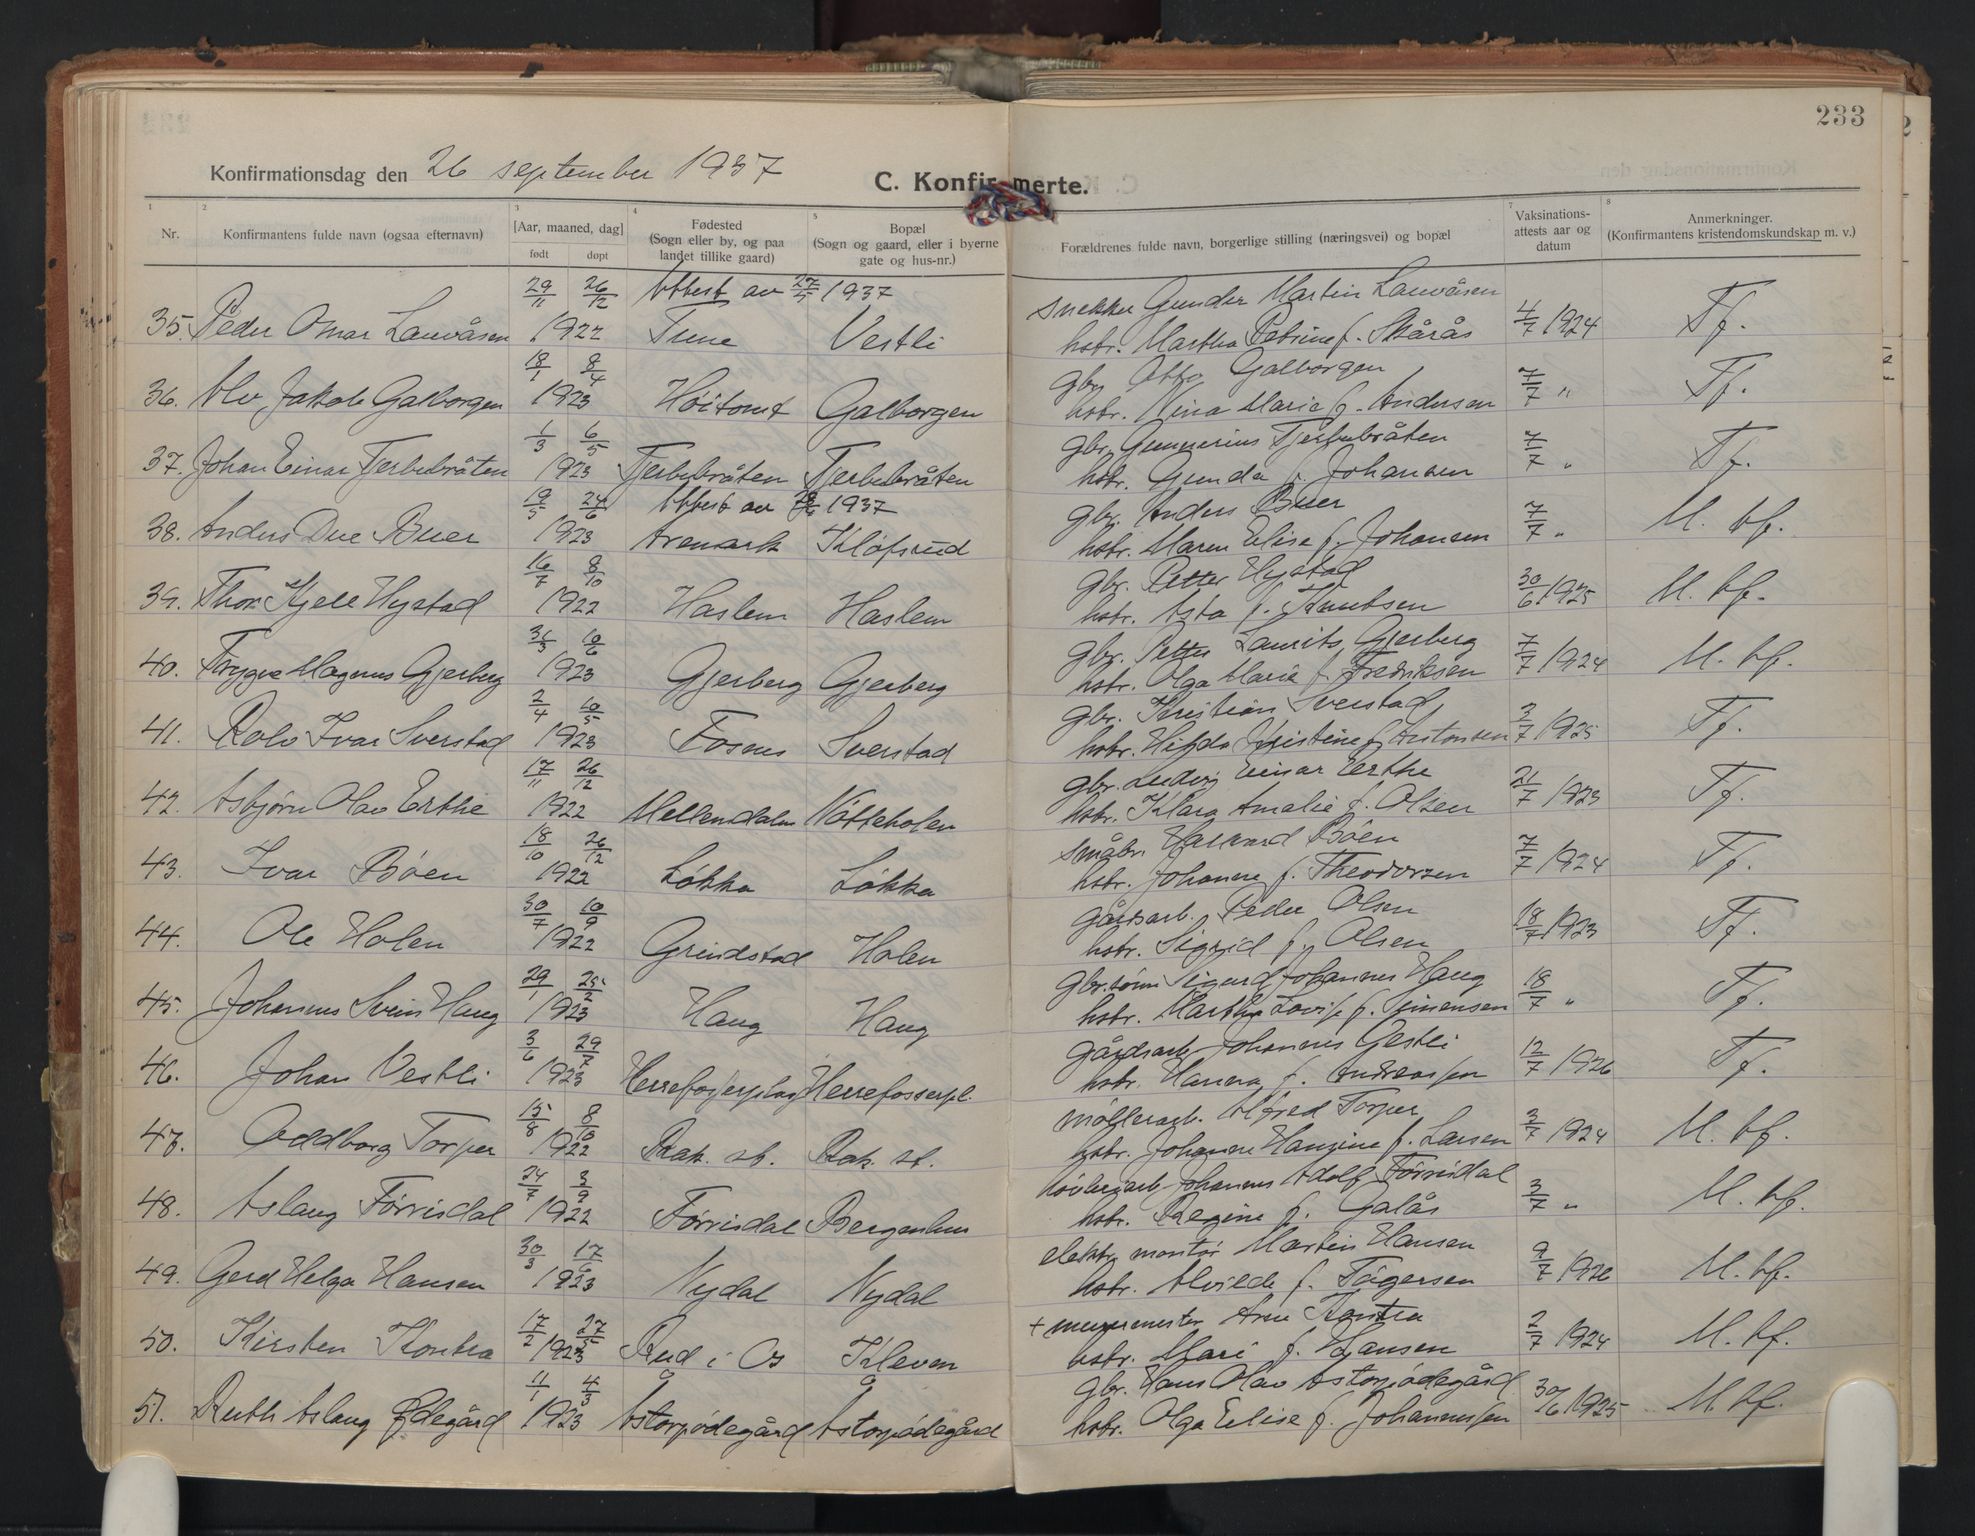 233
Konfirmationsdag den 26 september 1937
C. Konfirmerte.
1 2 3 4 5 7 8
Nr.
Konfirmantens fulde navn (ogsaa efternavn)
[Aar, maaned, dag]
født døpt
Fødested
(Sogn eller by, og paa
landet tillike gaard)
Bopæl
(Sogn og gaard, eller i byerne
gate og hus-nr.)
Forældrenes fulde navn, borgerlige stilling (næringsvei) og bopæl
Vaksinations-
attests aar og
datum
Anmerkninger.
(Konfirmantens kristendomskundskap m. v.)
29/11 26/12 Attest av 27/5 1937 snekker Gunder Martin Lauvåsen
35. Peder Omar Lauvåsen 1922 Tune Vestli hstr. Martha Petrine f. Skårås 4/7 1924 Tf.
18/1 8/4 gbr. Otto Galborgen
36. Alv Jakob Galborgen 1923 Høitomt Galborgen hstr. Nina Marie f. Andersen 7/7 " Tf.
1/3 6/5 gbr. Gunnerius Tjerbubråten
37. Johan Einar Tjerbubråten 1923 Tjerbubråten Tjerbubråten hstr. Gunda f. Johansen 7/7 " Tf.
19/5 24/6 Attest av 1937 gbr. Anders Buer
38. Anders Due Buer 1923 Aremark Kløfsrud hstr. Maren Elise f. Johansen 7/7 " M. tf.
16/7 8/10 gbr. Petter Hystad
39. Thor Kjell Hystad 1922 Haslem Haslem hstr. Asta f. Knutsen 30/6 1925 M. tf.
31/3 10/6 gbr. Petter Laurits Gjerberg
40. Trygve Magnus Gjerberg 1923 Gjerberg Gjerberg hstr. Olga Marie f. Fredriksen 7/7 1924 M. tf.
2/4 10/5 gbr. Kristian Sverstad
41. Rolv Ivar Sverstad 1923 Fosens Sverstad hstr. Hilda Kristine f. Antonsen 3/7 1925 Tf.
17/11 26/12 gbr. Ludvig Einar Erthe
42. Asbjørn Olav Erthe 1922 Mellendalen Nötteholen hstr. Klara Amalie f. Olsen 21/7 1923 Tf.
18/10 26/12 småbr. Halvard Bøen
43. Ivar Bøen 1922 Løkka Løkka hstr. Johanne f. Theodorsen 7/7 1924 Tf.
30/7 10/9 gårdsarb. Peder Olsen
44. Ole Holen 1922 Grindstad Holen hstr. Sigrid f. Olsen 18/7 1923 Tf.
29/1 25/2 gbr.sønn Sigurd Johannes Haug
45. Johannes Svein Haug 1923 Haug Haug hstr. Martha Lovise f. Simensen 18/7 " Tf.
3/6 29/7 gårdsarb. Johannes Gestli
46. Johan Vestli 1923 Herrefosserplass Herrefosserpl. hstr. Hanna f. Andreassen 12/7 1926 Tf.
15/8 8/10 møllerarb. Alfred Torper
47. Oddborg Torper 1922 Rak. st. Rak. st. hstr. Johanne Hansine f. Larsen 3/7 1924 M. tf.
24/7 3/9 høvleriarb. Johannes Adolf Førrisdal
48. Aslaug Førrisdal 1922 Førrisdal Bergenhus hstr. Regine f. Galås 3/7 " M. tf.
30/3 17/6 elektr. montør Martin Hansen
49. Gerd Helga Hansen 1923 Nydal Nydal hstr. Alvilde f. Tågersen 9/7 M. tf.
17/2 27/5 + murermester Arne Kontra
50. Kirsten Kontra 1923 Rud i Os Kleven hstr. Mari f. Hansen 2/7 1924 M. tf.
11/1 4/3 gbr. Hans Olav Astorpødegård
51. Ruth Aslaug Ødegård 1923 Astorpødegård Astorpødegård hstr. Olga Elise f. Johannessen 30/6 1925 M. tf.